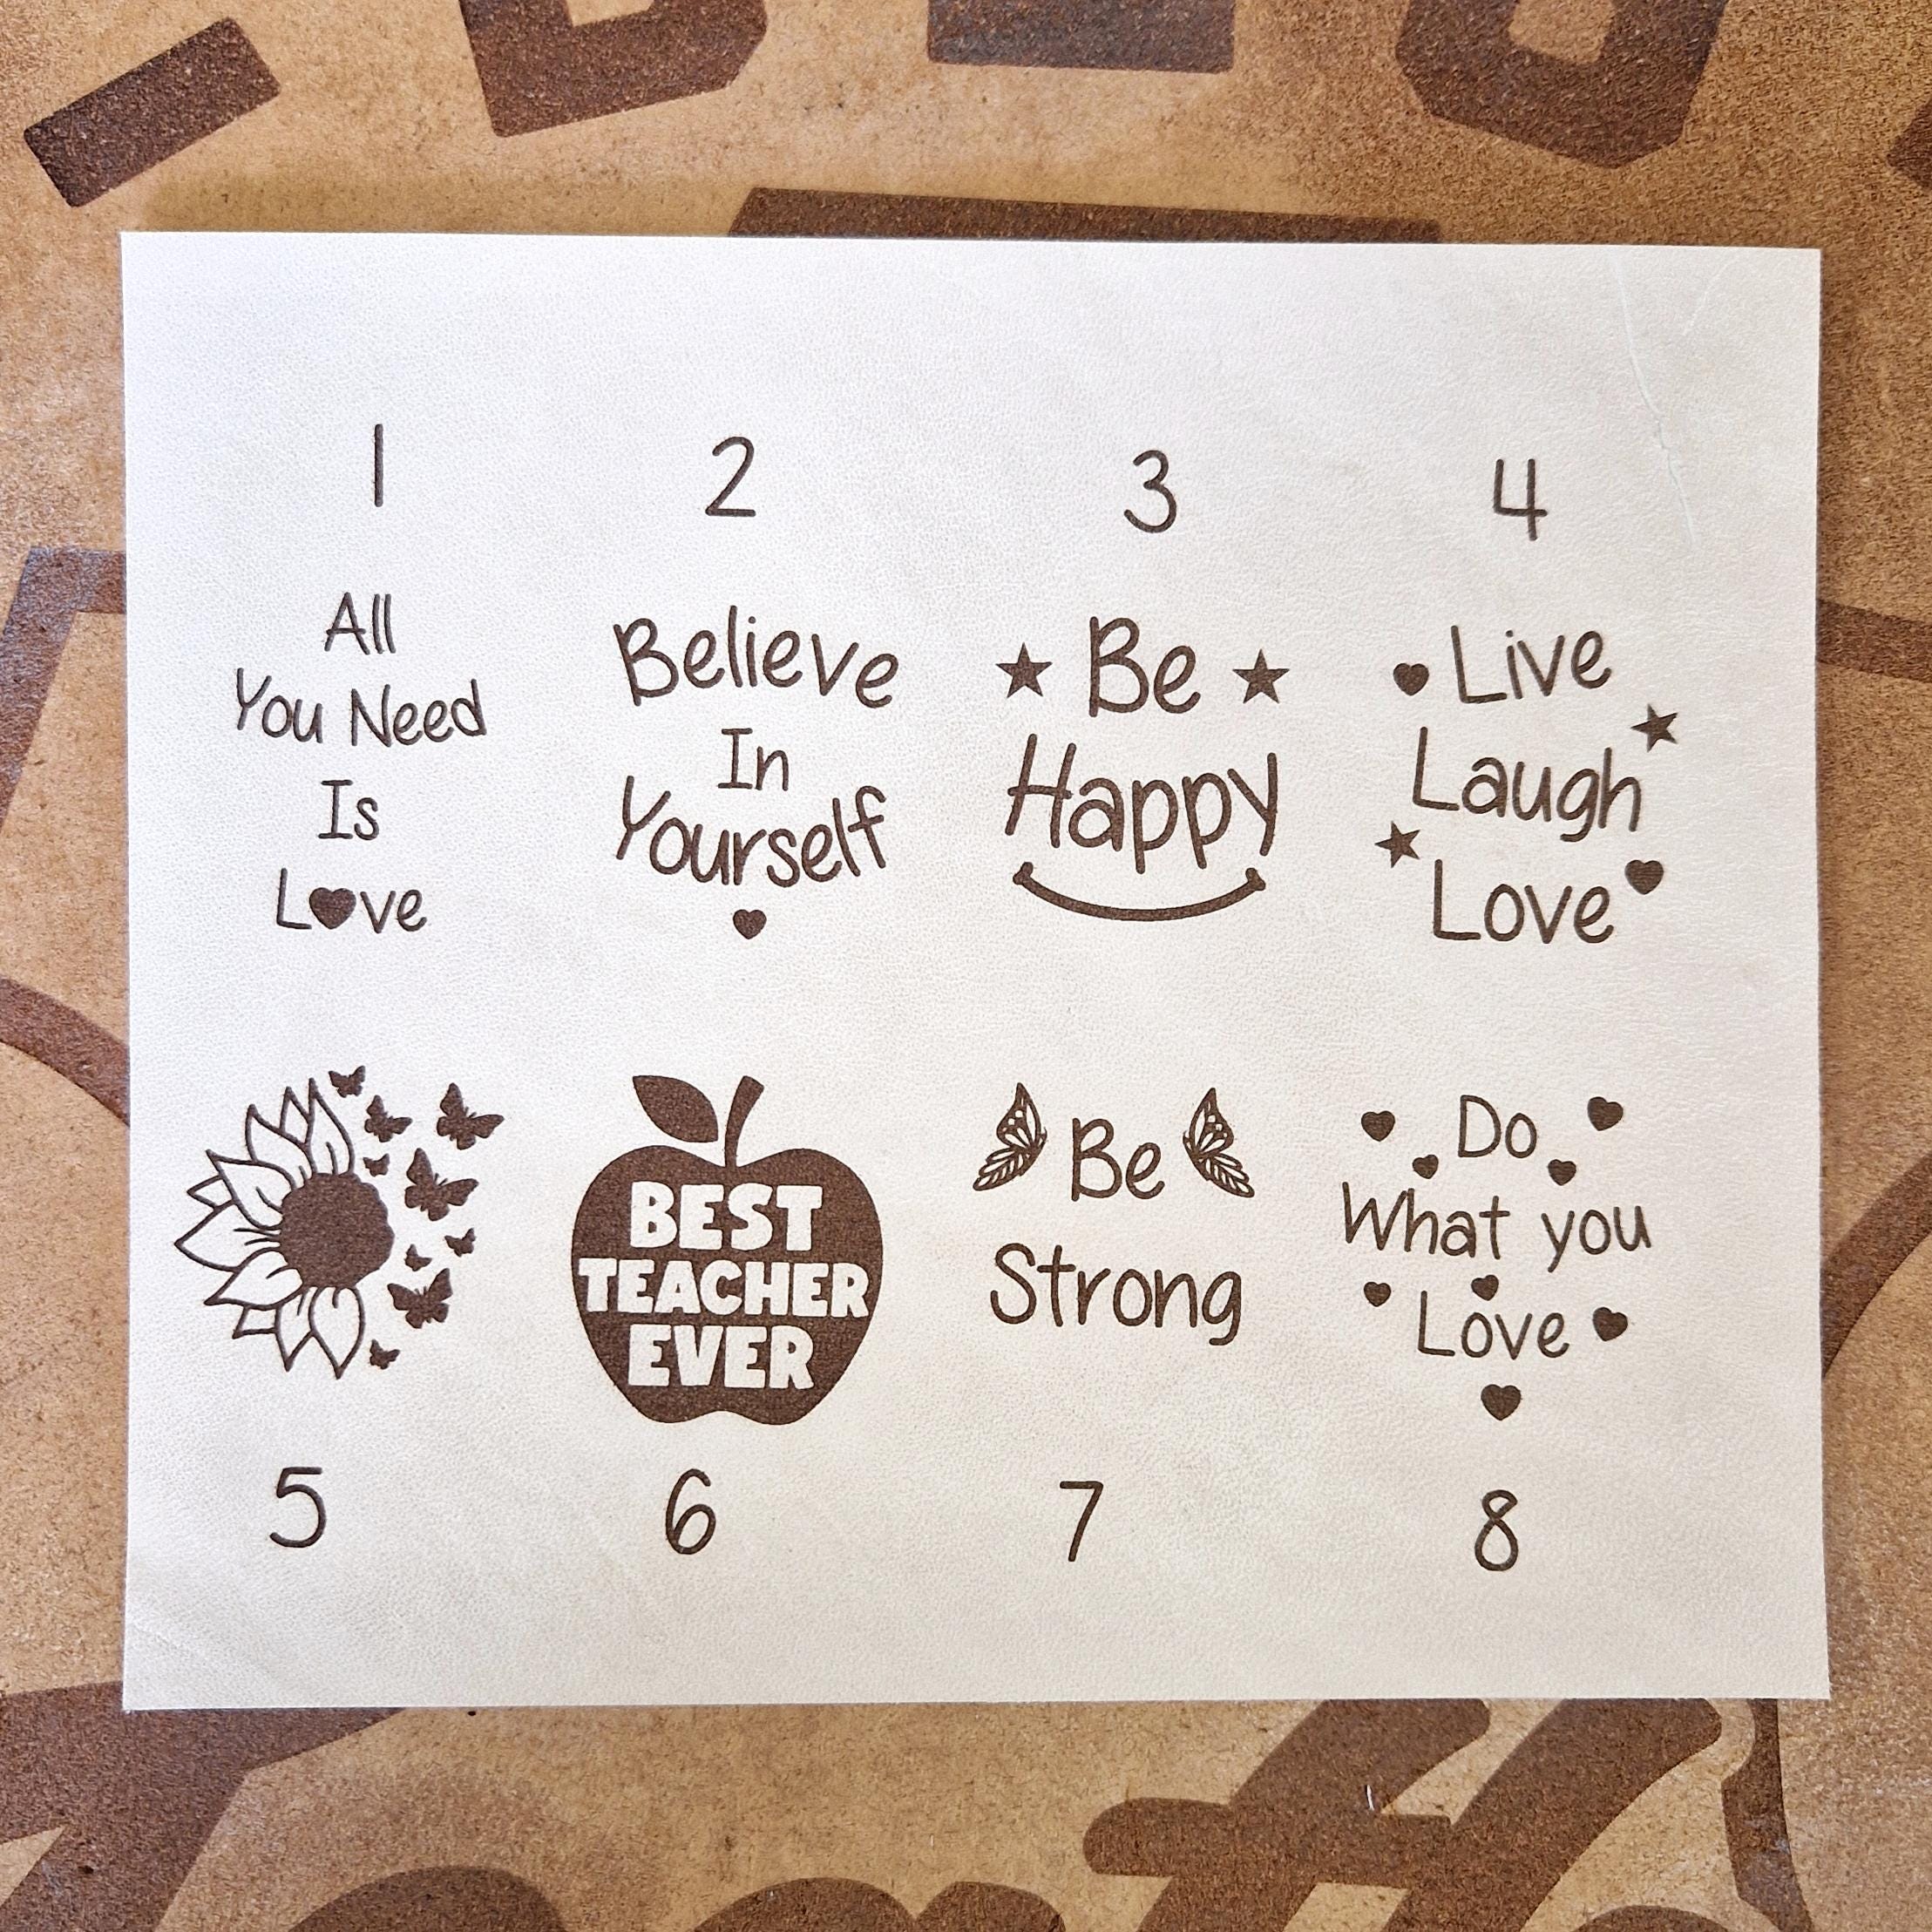 1 2 3 4
All
You Need
Is
L❤ve
Believe
In
Yourself
Be
Happy
Live
Laugh
Love
BEST
TEACHER
EVER
Be
Strong
Do
What you
Love
5 6 7 8